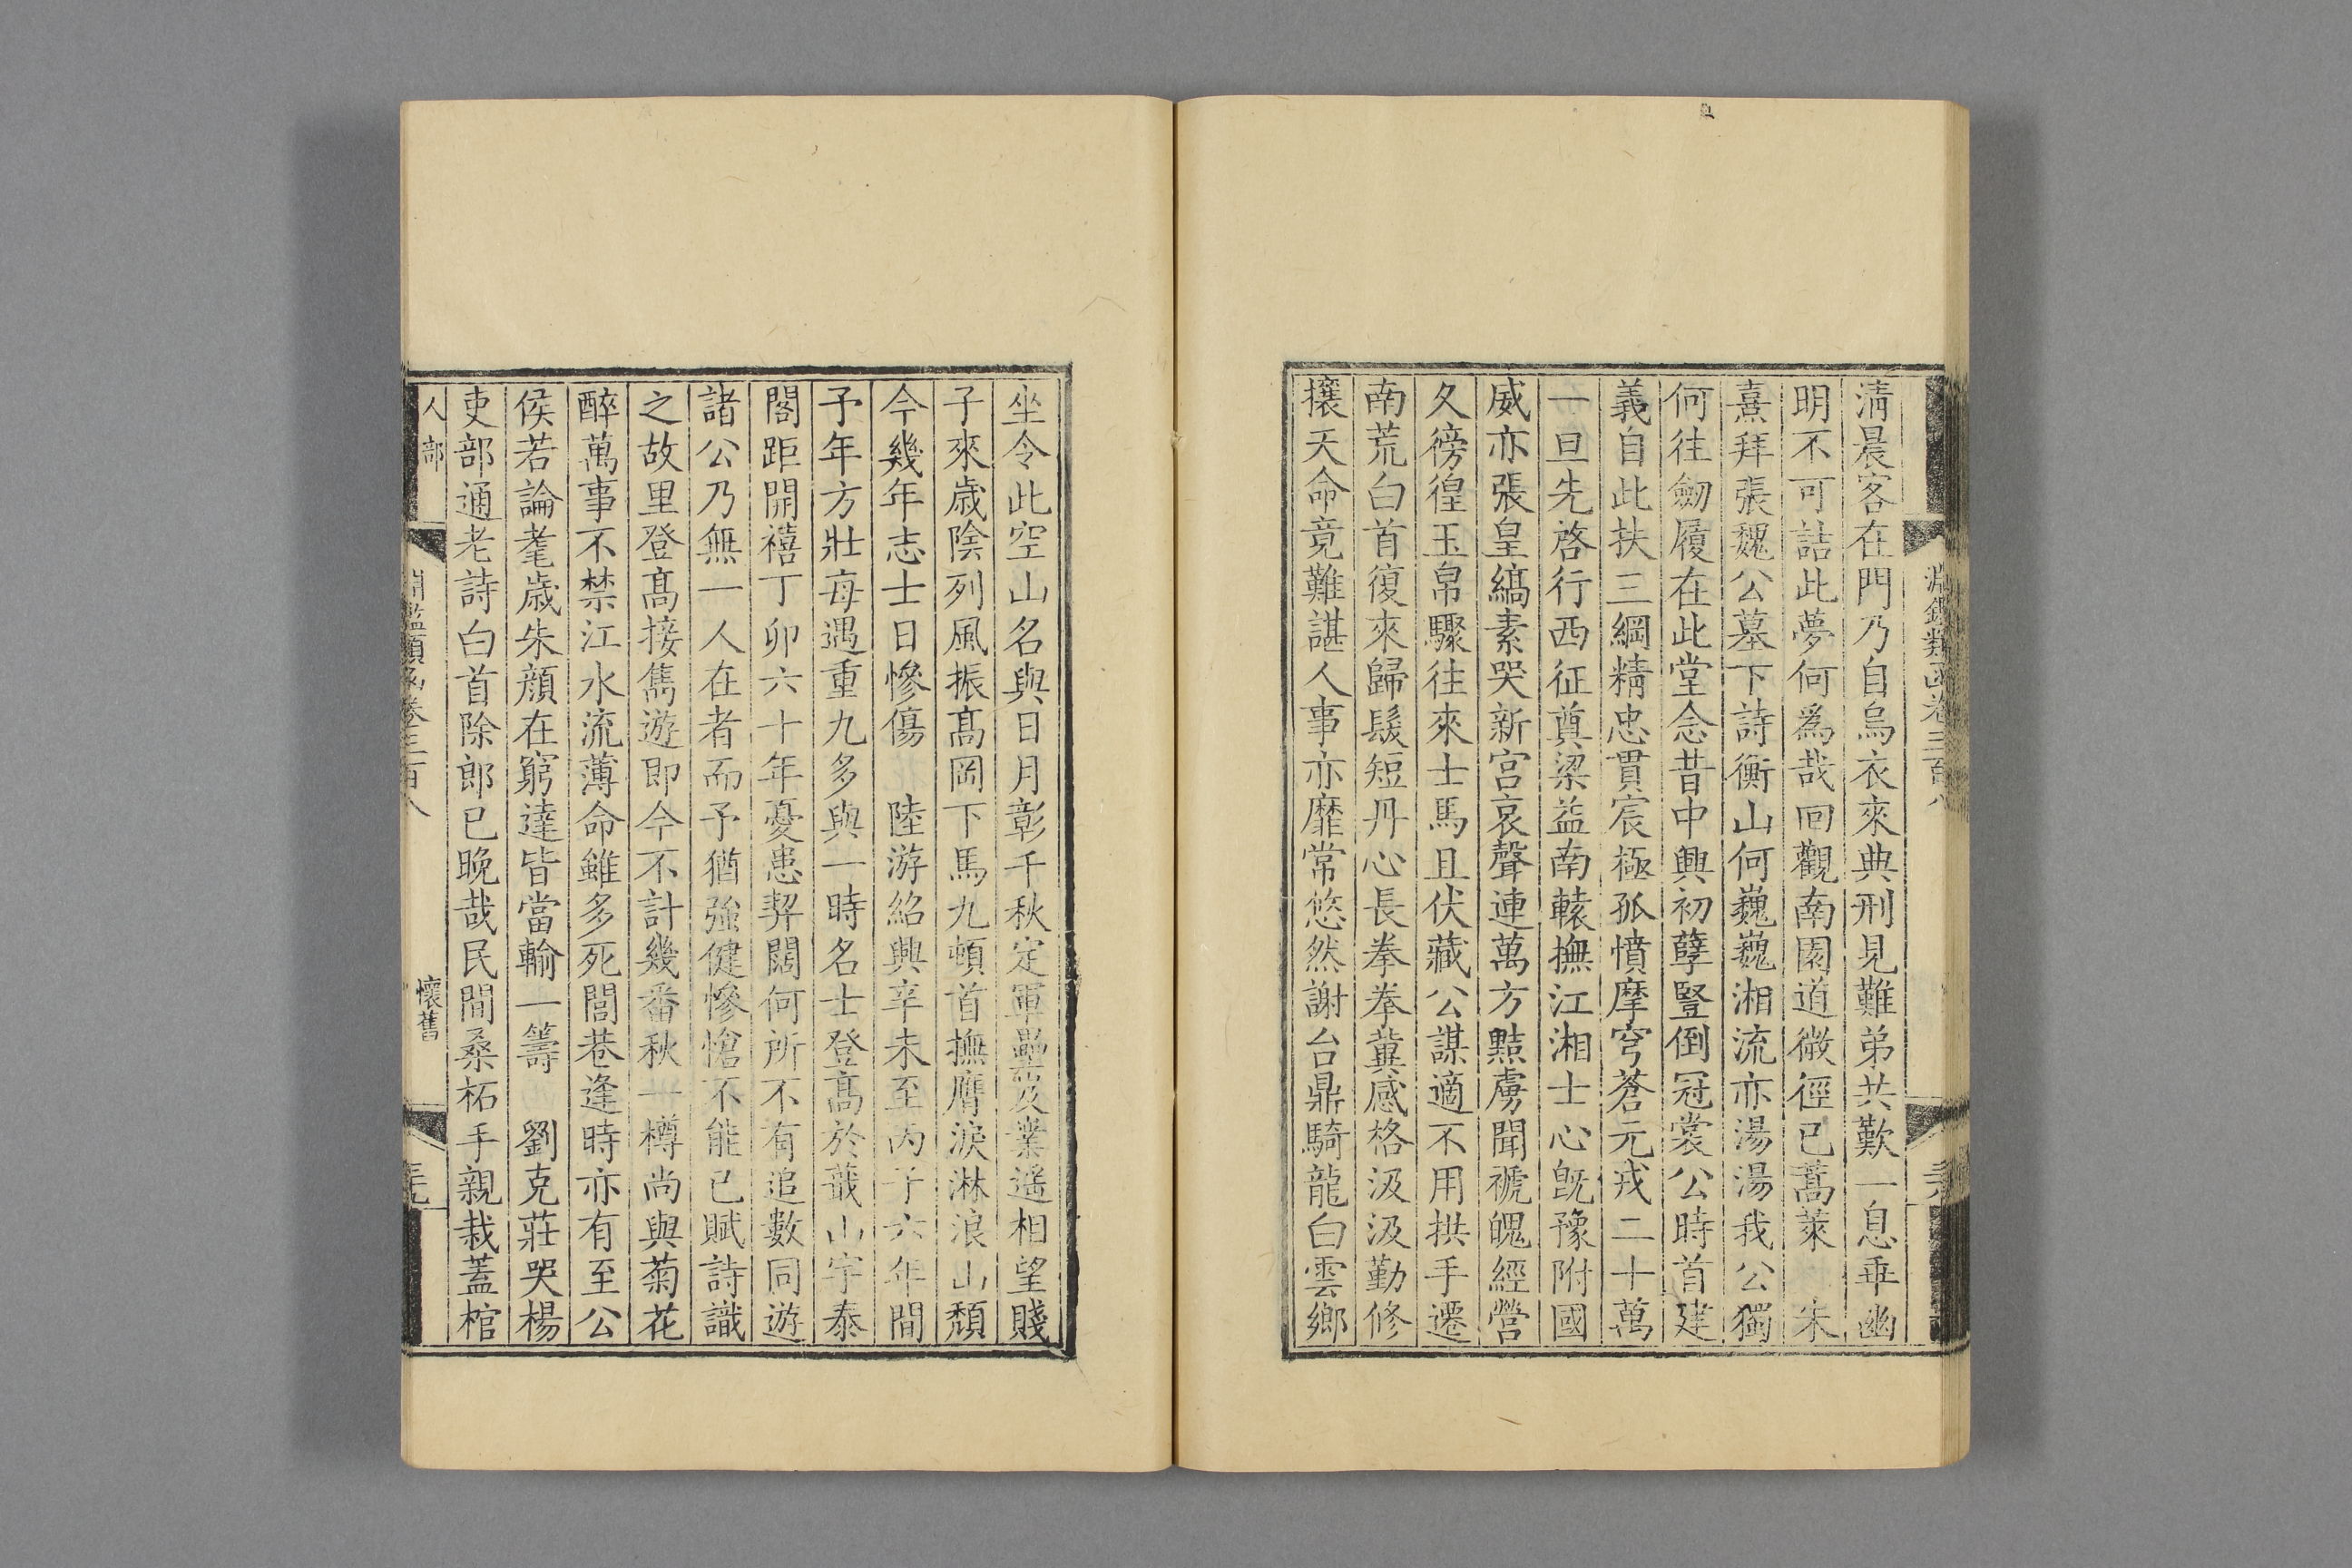 淵鑑類函卷三百八
清晨客在門乃自烏衣來典刑見難弟共歎一息乖幽
明不可詰此夢何爲哉回觀南園道微徑已蒿萊 朱
熹拜張魏公墓下詩衡山何巍巍湘流亦湯湯我公獨
何往劒履在此堂念昔中興初孽豎倒冠裳公時首建
義自此扶三綱精忠貫宸極孤憤摩穹蒼元戎二十萬
一旦先啓行西征奠梁益南轅撫江湘士心旣豫附國
威亦張皇縞素哭新宮哀聲連萬方黠虜聞褫魄經營
久徬徨玉帛驟往來士馬且伏藏公謀適不用拱手遷
南荒白首復來歸髮短丹心長拳拳冀感格汲汲勤修
攘天命竟難諶人事亦靡常悠然謝台鼎騎龍白雲鄉
坐令此空山名與日月彰千秋定軍壘岌業遙相望賤
子來歳陰列風振髙岡下馬九頓首撫膺淚淋浪山頹
今幾年志士日慘傷 陸游紹興辛未至丙子六年間
予年方壯每遇重九多與一時名士登髙於蕺山宇泰
閣距開禧丁卯六十年憂患契闊何所不有追數同遊
諸公乃無一人在者而予猶強健慘愴不能已賦詩識
之故里登髙接雋遊即今不計幾番秋一樽尚與菊花
醉萬事不禁江水流薄命雖多死閭巷逢時亦有至公
侯若論耄歳朱顔在窮達皆當輸一籌 劉克莊哭楊
吏部通老詩白首除郎已晚哉民間桑柘手親栽蓋棺
人部 淵鑑類函卷三百八 懷舊